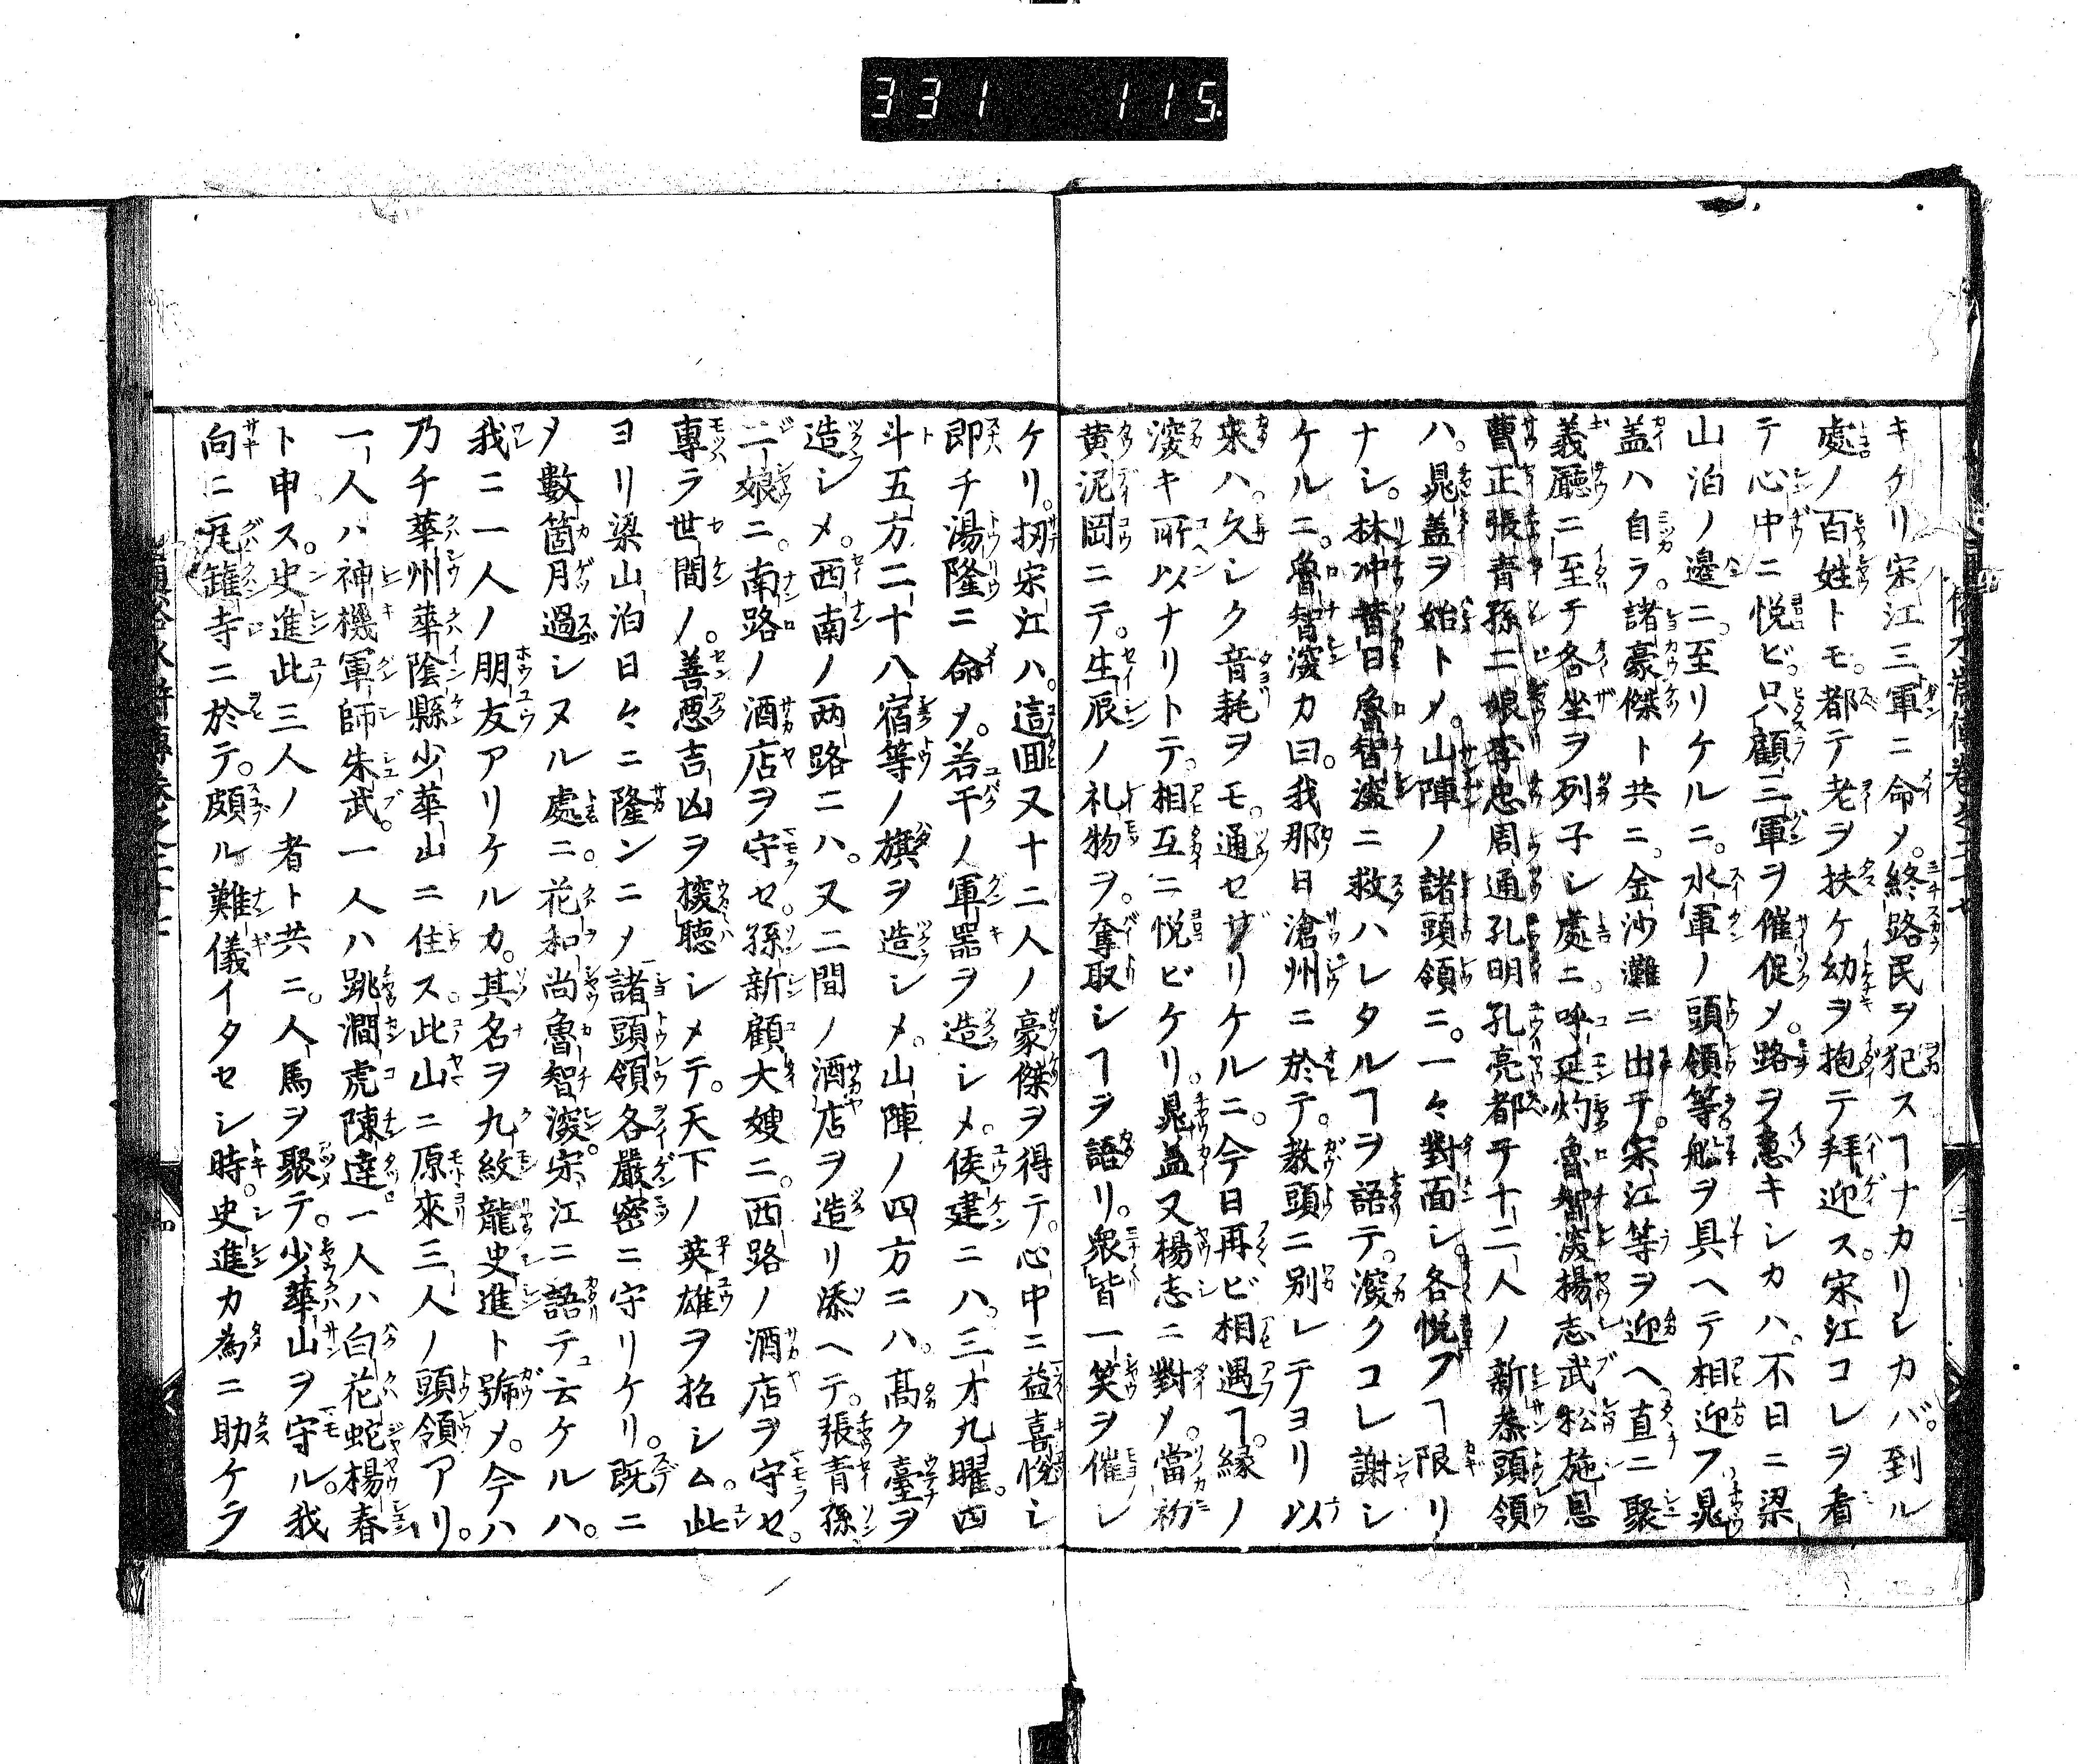 331 115.
キケリ宋江三軍ニ命メ。終路民ヲ犯スヿナカリシカバ。到ル
處ノ百姓トモ。都テ老ヲ扶ケ幼ヲ抱テ拜迎ス。宋江コレヲ看
テ心中ニ悦ビ。只顧三軍ヲ催促メ。路ヲ急キシカハ。不日ニ梁
山泊ノ邊ニ至リケルニ。水軍ノ頭領等。船ヲ具ヘテ相迎フ晁
盖ハ自ラ。諸豪傑ト共ニ。金沙灘ニ出テ。宋江等ヲ迎ヘ。直ニ聚
義廳ニ至テ各坐ヲ列子シ處ニ。呼延灼魯智深楊志武松施恩
曹正張青孫二娘李忠周通孔明孔亮都テ十二人ノ新叅頭領
ハ。晁盖ヲ始トメ。山陣ノ諸頭領ニ。一々對面シ。各悦フヿ限リ
ナシ。林冲昔日魯智深ニ救ハレタルヿヲ語テ。深クコレ謝シ
ケルニ。魯智深カ曰。我那日滄州ニ於テ。教頭ニ別レテヨリ以
來ハ。久シク音耗ヲモ。通セザリケルニ。今日再ビ相遇ヿ。縁ノ
深キ所以ナリトテ。相互ニ悦ビケリ。晁盖又楊志ニ對メ。當初
黄泥岡ニテ。生辰ノ礼物ヲ。奪取シヿヲ語リ。衆皆一笑ヲ催シ
ケリ。扨宋江ハ。這囬又十二人ノ豪傑ヲ得テ。心中ニ益喜悦シ
即チ湯隆ニ命メ。若干ノ軍噐ヲ造シメ。侯建ニハ。三才九曜。四
斗五方二十八宿等ノ旗ヲ造シメ。山陣ノ四方ニハ。髙ク臺ヲ
造シメ。西南ノ両路ニハ。又二間ノ酒店ヲ造リ添ヘテ。張青孫
二娘ニ。南路ノ酒店ヲ守セ。孫新顧大嫂ニ。西路ノ酒店ヲ守セ。
專ラ世間ノ。善悪吉凶ヲ探聴シメテ。天下ノ英雄ヲ招シム。此
ヨリ梁山泊日々ニ隆ンニメ諸頭領各嚴密ニ守リケリ。既ニ
メ數箇月過シヌル處ニ。花和尚魯智深。宋江ニ語テ云ケルハ。
我ニ一人ノ朋友アリケルカ。其名ヲ九紋龍史進ト號メ。今ハ
乃チ華州華陰縣少華山ニ住ス。此山ニ原來三人ノ頭領アリ。
一人ハ神機軍師朱武。一人ハ跳澗虎陳達一人ハ白花蛇楊春
ト申ス。史進此三人ノ者ト共ニ。人馬ヲ聚テ。少華山ヲ守ル。我
向ニ瓦罐寺ニ於テ。頗ル難儀イタセシ時。史進カ為ニ助ケラ